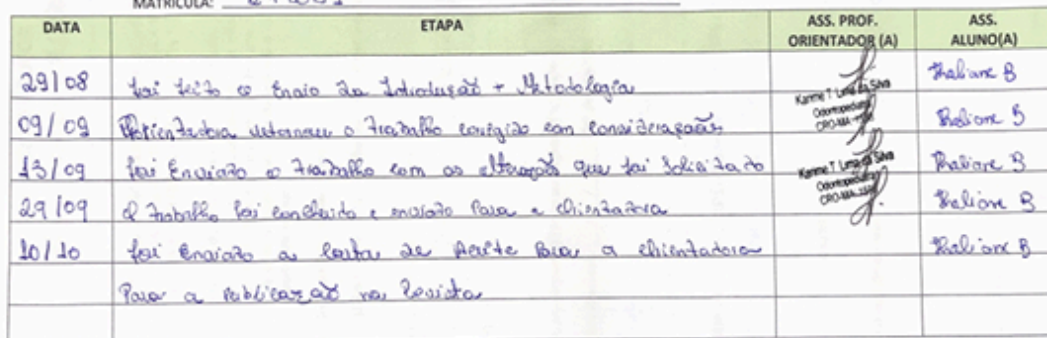 MATRÍCULA:
DATA ETAPA ASS. PROF. ORIENTADOR (A) ASS. ALUNO(A)
29/08 foi feito o Envio da Introdução + Metodologia Thaliane B
Karime T. Lima da Silva
Odontopediatra
CRO-MA
09/09 Orientadora retornou o trabalho corrigido com considerações Thaliane B
13/09 foi Enviado o trabalho com as alterações que foi solicitado Thaliane B
Karime T. Lima da Silva
Odontopediatra
CRO-MA
29/09 O trabalho foi concluido e enviado Para a Orientadora Thaliane B
10/10 foi Enviado a Carta de Aceite Para a Orientadora Thaliane B
Para a Publicação na Revista